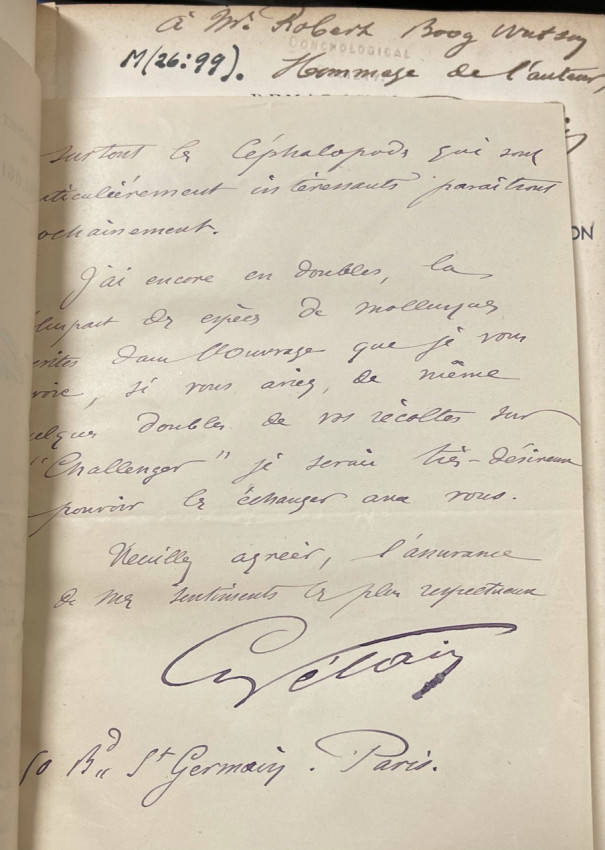 à Mr. Robert Boog Watson
CONCHOLOGICAL
M(26:99). Hommage de l'auteur,
ON
surtout les Céphalopods qui sont
ticulièrement intéressants paraîtront
ochainement.
J'ai encore en doubles, la
plupart des espèces de mollusques
crites dans l'ouvrage que je vous
voie, si vous aviez, de même
uelques doubles de vos récoltes sur
"Challenger" je serais très-désireux
pouvoir les échanger avec vous.
Veuillez agréer, l'assurance
de mes sentiments les plus respectueux
Ch Vélain
Bd St Germain. Paris.